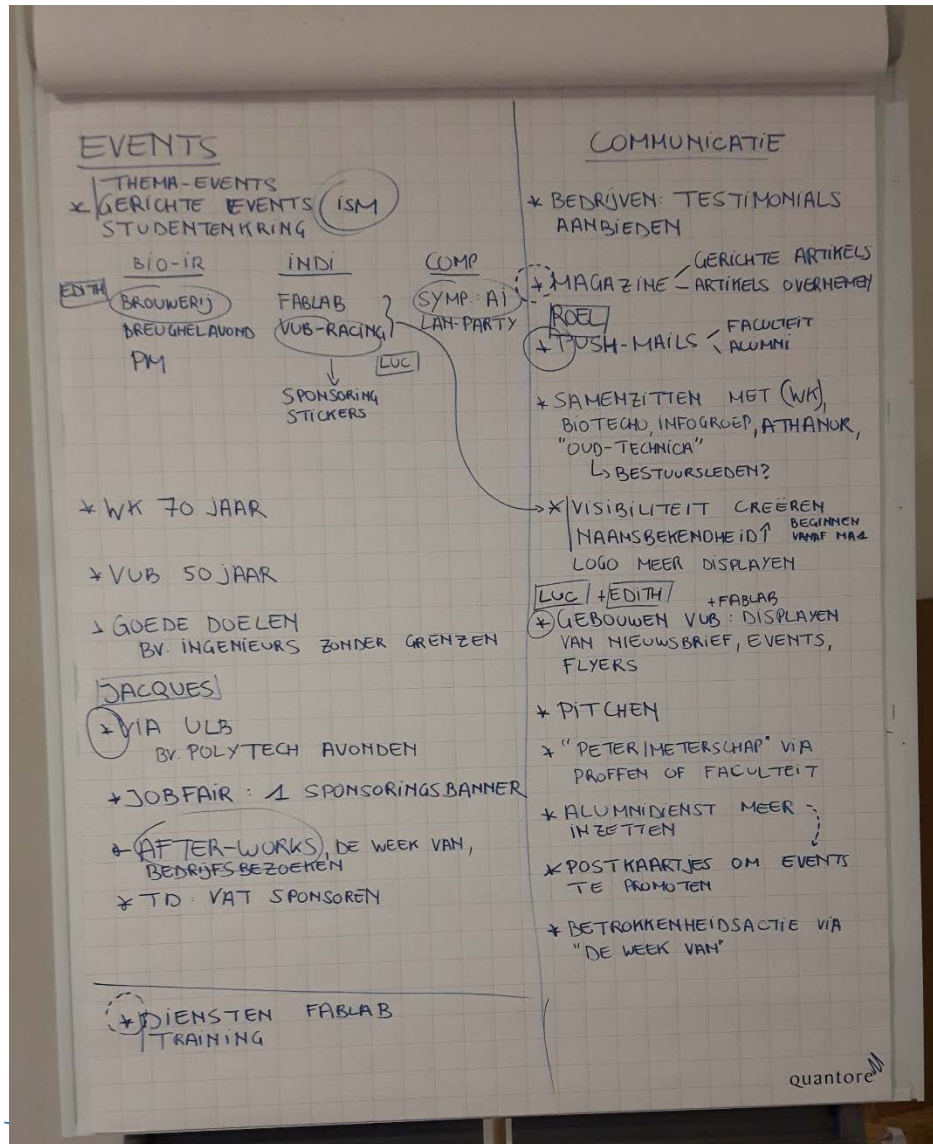 EVENTS
THEMA-EVENTS
* GERICHTE EVENTS ISM
STUDENTENKRING
BIO-IR
EDITH
BROUWERIJ
BREUGHELAVOND
PM
INDI
FABLAB
VUB-RACING
LUC
SPONSORING
STICKERS
COMP
SYMP: AI
LAN-PARTY
* WK 70 JAAR
* VUB 50 JAAR
* GOEDE DOELEN
BV. INGENIEURS ZONDER GRENZEN
JACQUES
* VIA ULB
BV. POLYTECH AVONDEN
* JOBFAIR: 1 SPONSORINGSBANNER
* AFTER-WORKS, DE WEEK VAN,
BEDRIJFSBEZOEKEN
* TD: VAT SPONSOREN
* DIENSTEN FABLAB
TRAINING
COMMUNICATIE
* BEDRIJVEN: TESTIMONIALS
AANBIEDEN
* MAGAZINE - GERICHTE ARTIKELS
- ARTIKELS OVERNEMEN
ROEL
* PUSH-MAILS - FACULTEIT
ALUMNI
* SAMENZITTEN MET (WK),
BIOTECHO, INFOGROEP, ATHANOR,
"OUD-TECHNICA"
↳ BESTUURSLEDEN?
* VISIBILITEIT CREËREN
NAAMSBEKENDHEID↑ BEGINNEN
VANAF MA1
LOGO MEER DISPLAYEN
LUC + EDITH
+ FABLAB
* GEBOUWEN VUB: DISPLAYEN
VAN NIEUWSBRIEF, EVENTS,
FLYERS
* PITCHEN
* "PETER/METERSCHAP" VIA
PROFFEN OF FACULTEIT
* ALUMNIDIENST MEER
INZETTEN
* POSTKAARTJES OM EVENTS
TE PROMOTEN
* BETROKKENHEIDSACTIE VIA
"DE WEEK VAN"
quantore